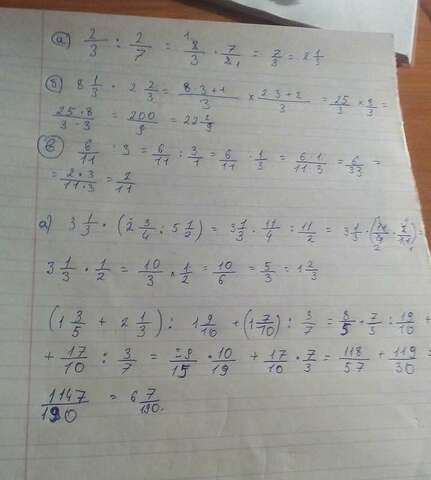 а) 2/3 : 2/7 = 2/3 · 7/2 = 7/3 = 2 1/3
б) 8 1/3 · 2 2/3 = 8·3+1/3 × 2·3+2/3 = 25/3 × 8/3 =
25·8/3·3 = 200/9 = 22 2/9
в) 6/11 : 3 = 6/11 : 3/1 = 6/11 · 1/3 = 6·1/11·3 = 6/33 =
= 2·3/11·3 = 2/11
а) 3 1/3 · (2 3/4 : 5 1/2) = 3 1/3 · 11/4 : 11/2 = 3 1/3 · (11/4 · 2/11) =
3 1/3 · 1/2 = 10/3 × 1/2 = 10/6 = 5/3 = 1 2/3
(1 3/5 + 2 1/3) : 1 9/10 + (1 7/10) : 3/7 = 8/5 + 7/3 : 19/10 +
+ 17/10 : 3/7 = 59/15 · 10/19 + 17/10 · 7/3 = 118/57 + 119/30 =
1147/190 = 6 7/190.